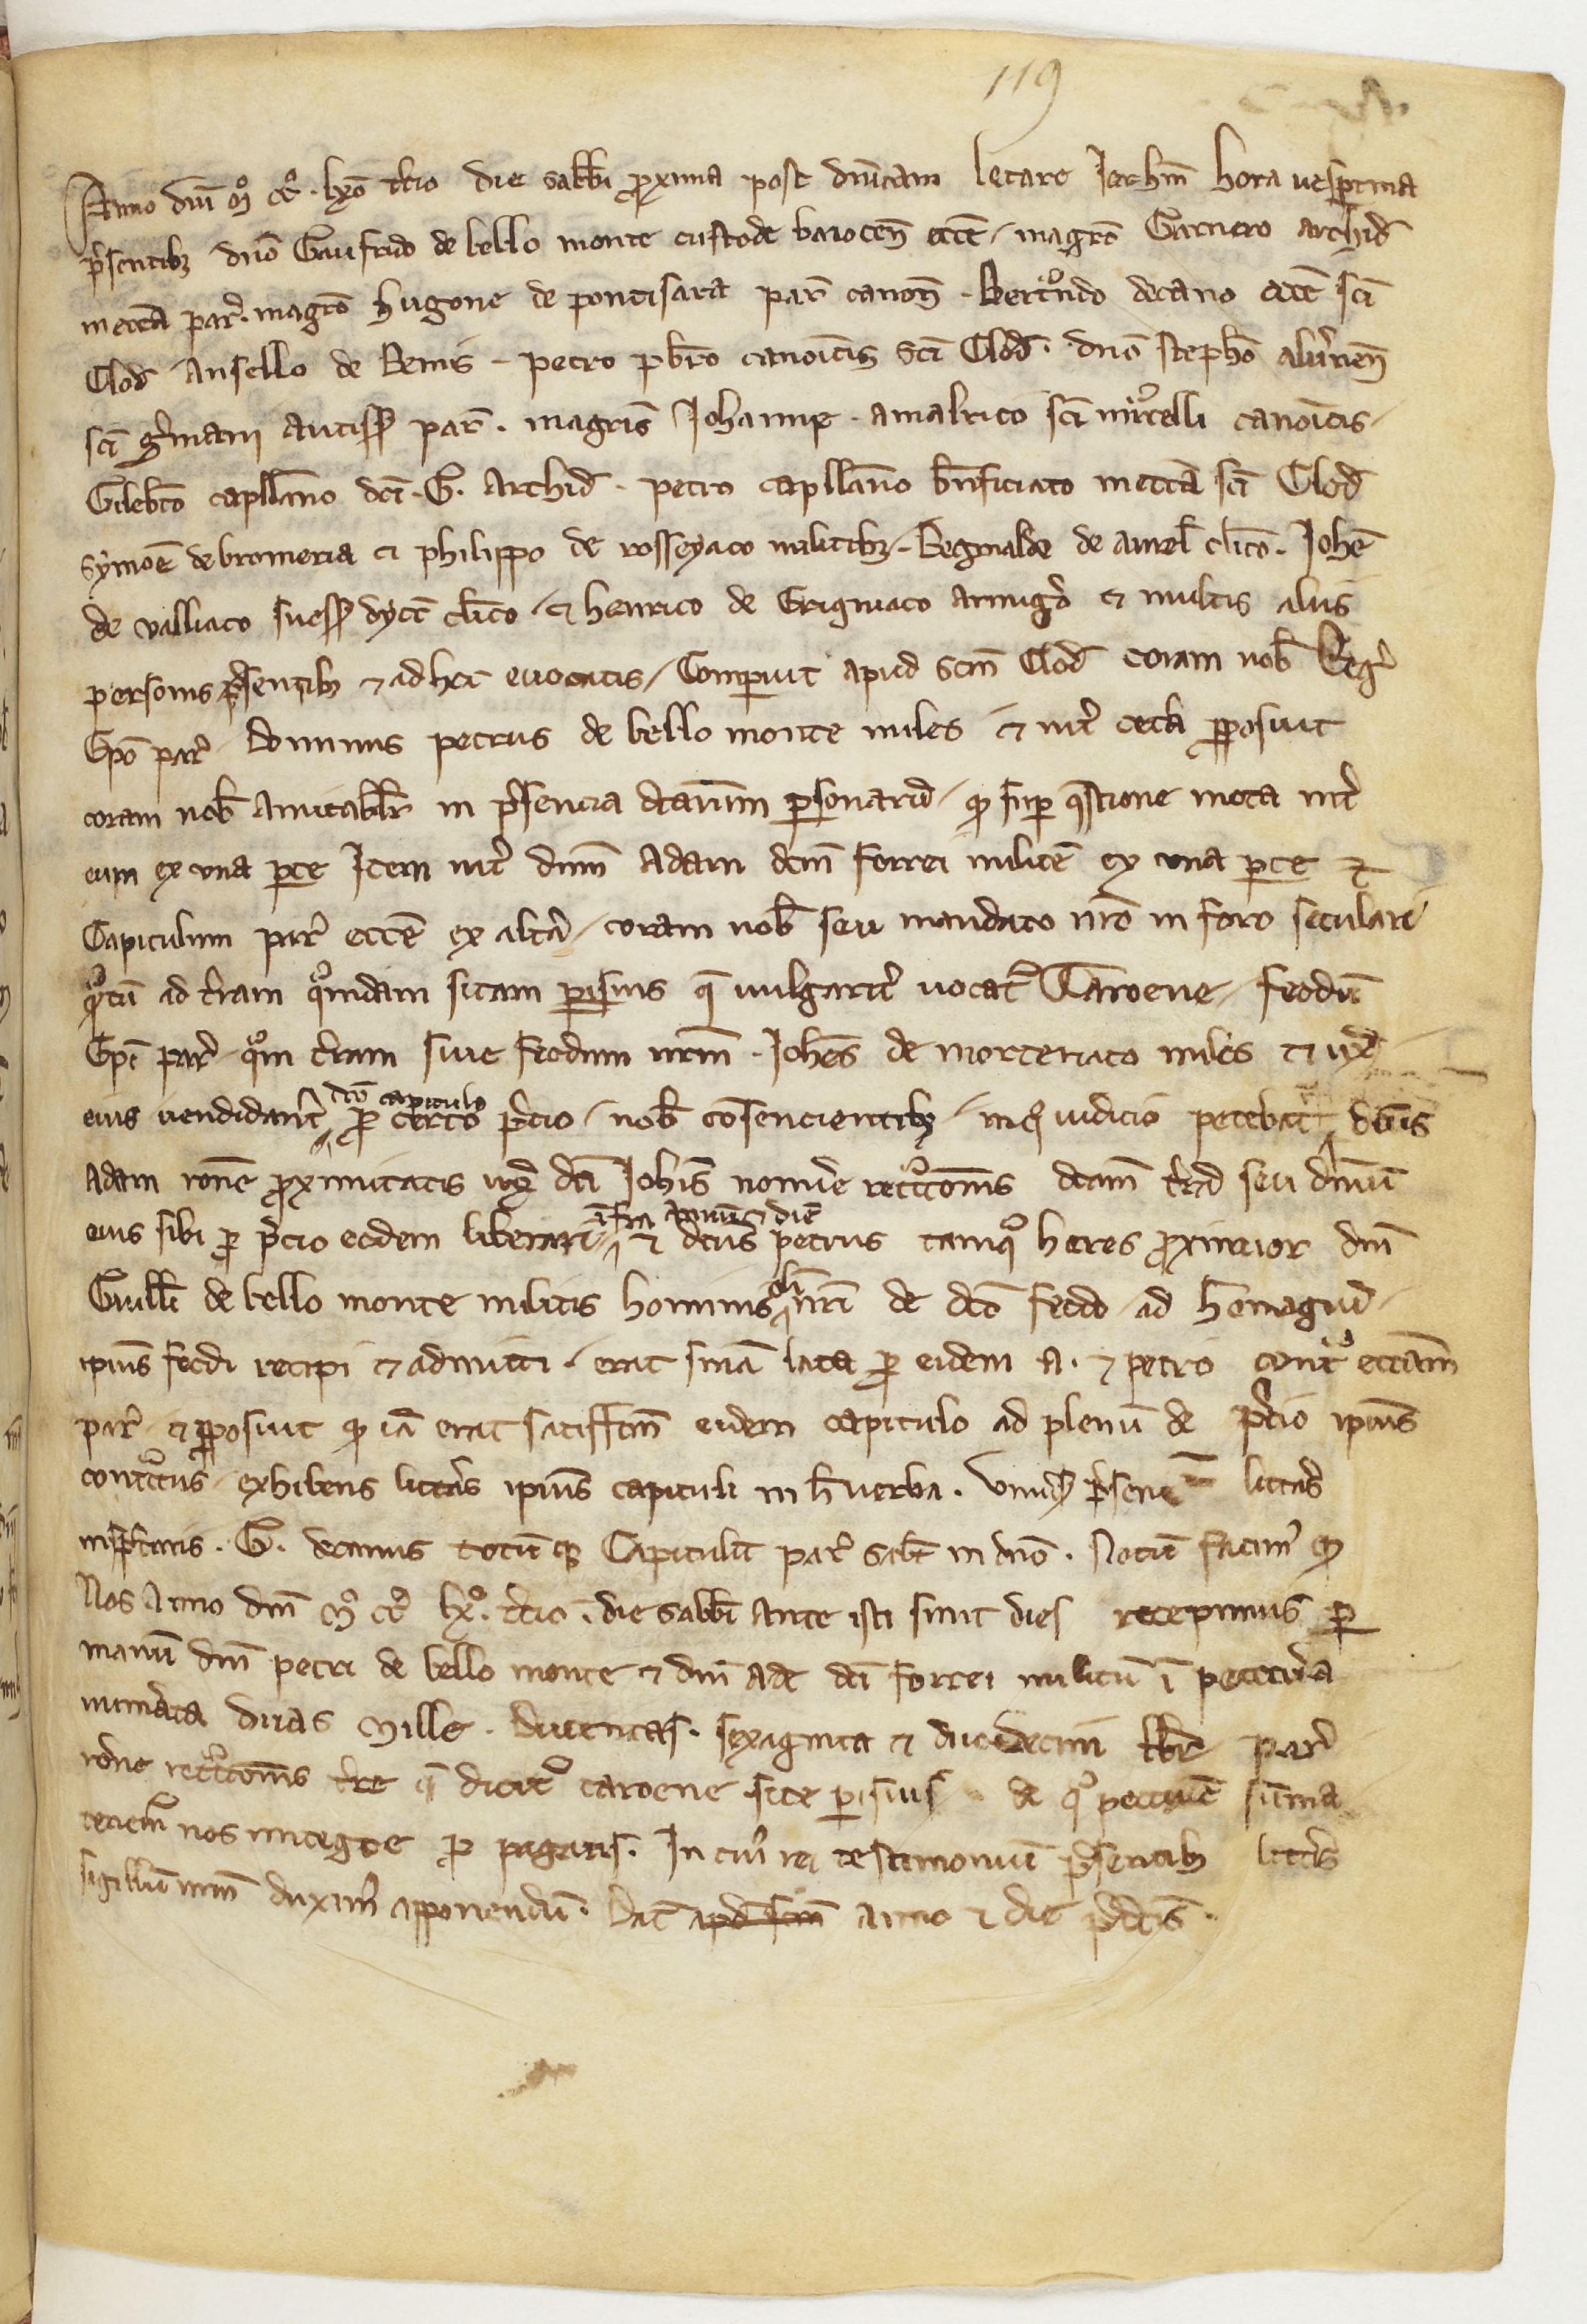 119
Anno dnī mº ccº. lxº tcio die sabbī proxima post dnicam letare Jerlm̄ hora uespertina
presentibȝ dnō Gaufrido de bello monte custode baiocen̄ eccē / magrō Garnero archid̄
in eccā par̄. magrō hugone de pontisara par̄ canon̄. Bertrando decano eccē sci
Clod̄ Ansello de Benis - petro pbrō canonicis sci Clod̄. dnō stephō
sci germani autiss̄ par̄. magris Johanne. amalrico sci marcelli canoicis /
Gilebto capllano dci. G. Archid̄. petro capllano bnficiato in eccā sci Clod̄
symōe de bromeria et philippo de rosseyaco militibȝ. Reginaldo de aurel̄ clico. Johē
de valliaco suess̄ dyoc̄ clico / et henrico de Grigniaco armigo et multis aliis
personis presentibȝ et ad hec euocatis / Comparuit apud scm̄ Clod̄ coram nob̄ Reḡ
Epō par̄. dominus petrus de bello monte miles et int̄ cetā proposuit
coram nob̄ amicabiliter in presencia dictarum personarum / qd super questione mota int̄
eum ex una parte Item int̄ dnm̄ Adam dcm̄ Forrei militē ex una parte et
Capitulum par̄ eccē ex altā / coram nob̄ seu mandato nrō in foro seculari
quantū ad terram quondam sitam parisius que uulgarit̄ uocat̄ Taroene / feodū
Epī par̄. quam terram siue feodum nrm̄. Johēs de morteriaco miles et ux̄
eius uendidant̄ dcō capitulo pro certo precio / nob̄ consencientibȝ / in quo iudicio petebat dnus
Adam ronē proximitatis ux̄ dci Johis nomine retractionis dcam̄ trad seu dnium
eius sibi pro precio eodem liberari infra annū et diē et dictus petrus tamquam heres proximior dnī
Guillī de bello monte militis hominis olī nrī de dcō feodo ad homagiū /
ipius feodi recipi et admitti. erat snīa lata pro eidem A. et petro contra eccīam
par̄ et proposuit qd iā erat satisfcm̄ eidem capitulo ad plenū de precio ipius
contractus / exhibens litt̄as ipius capituli in h̄ uerba. Vniuersis presentes litt̄as
inspecturis. G. decanus totūqȝ Capitulū par̄ salt̄ in dnō. Notū facimus qd
Nos Anno dnī mº ccº lxº. tcio. die sabbī ante isti sunt dies recepimus per
manū dnī petri de bello monte et dnī Ade dci Forrei militū ī peccunia
numerata duas mille. ducentas. sexaginta et duodecim libr̄ par̄
ronē retractionis tre que dicit̄ taroene site parisius. de qua peccunie summa
tenem̄ nos integre pro pagatis. In cuius rei testimonium presentibȝ litt̄is
sigillum nrm̄ duximus apponendum. Dat̄ apd scm̄ anno et die predictis.